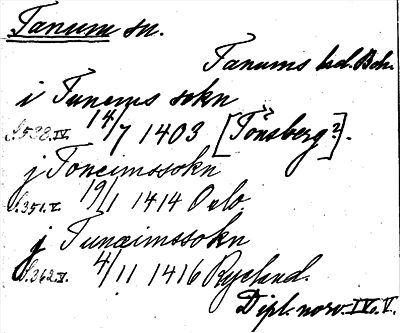 Tanum sn.
Tanums hd. Boh.
i Tunems sokn
S. 538. IV. 14/7 1403 [Tönsberg?].
j Toneimssokn
S. 351. V. 19/1 1414 Oslo
j Tunæimssokn
S. 362. V. 4/11 1416 Rycland.
Dipl. norv. IV. V.